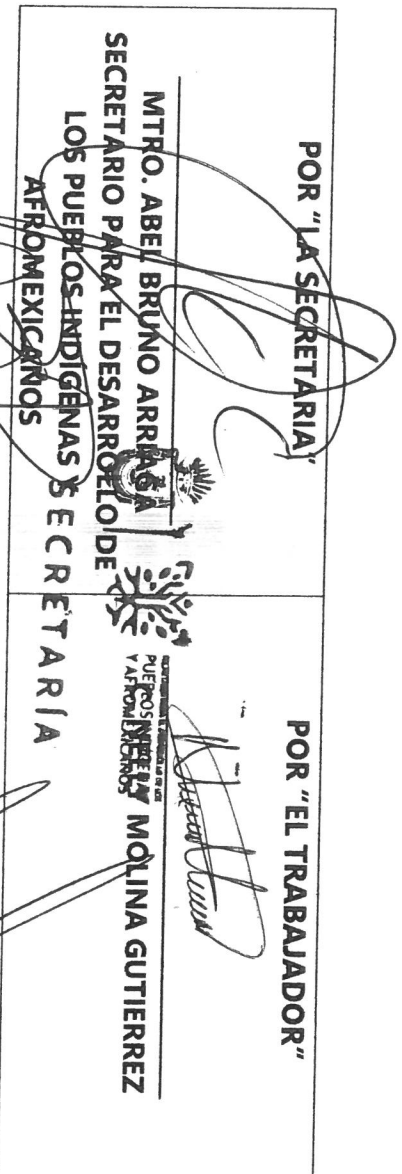 POR "LA SECRETARIA"
MTRO. ABEL BRUNO ARRIAGA
SECRETARIO PARA EL DESARROLLO DE
LOS PUEBLOS INDÍGENAS Y
AFROMEXICANOS
SECRETARÍA
POR "EL TRABAJADOR"
PUEBLOS INDÍGENAS
Y AFROMEXICANOS
C. NELLY MOLINA GUTIERREZ